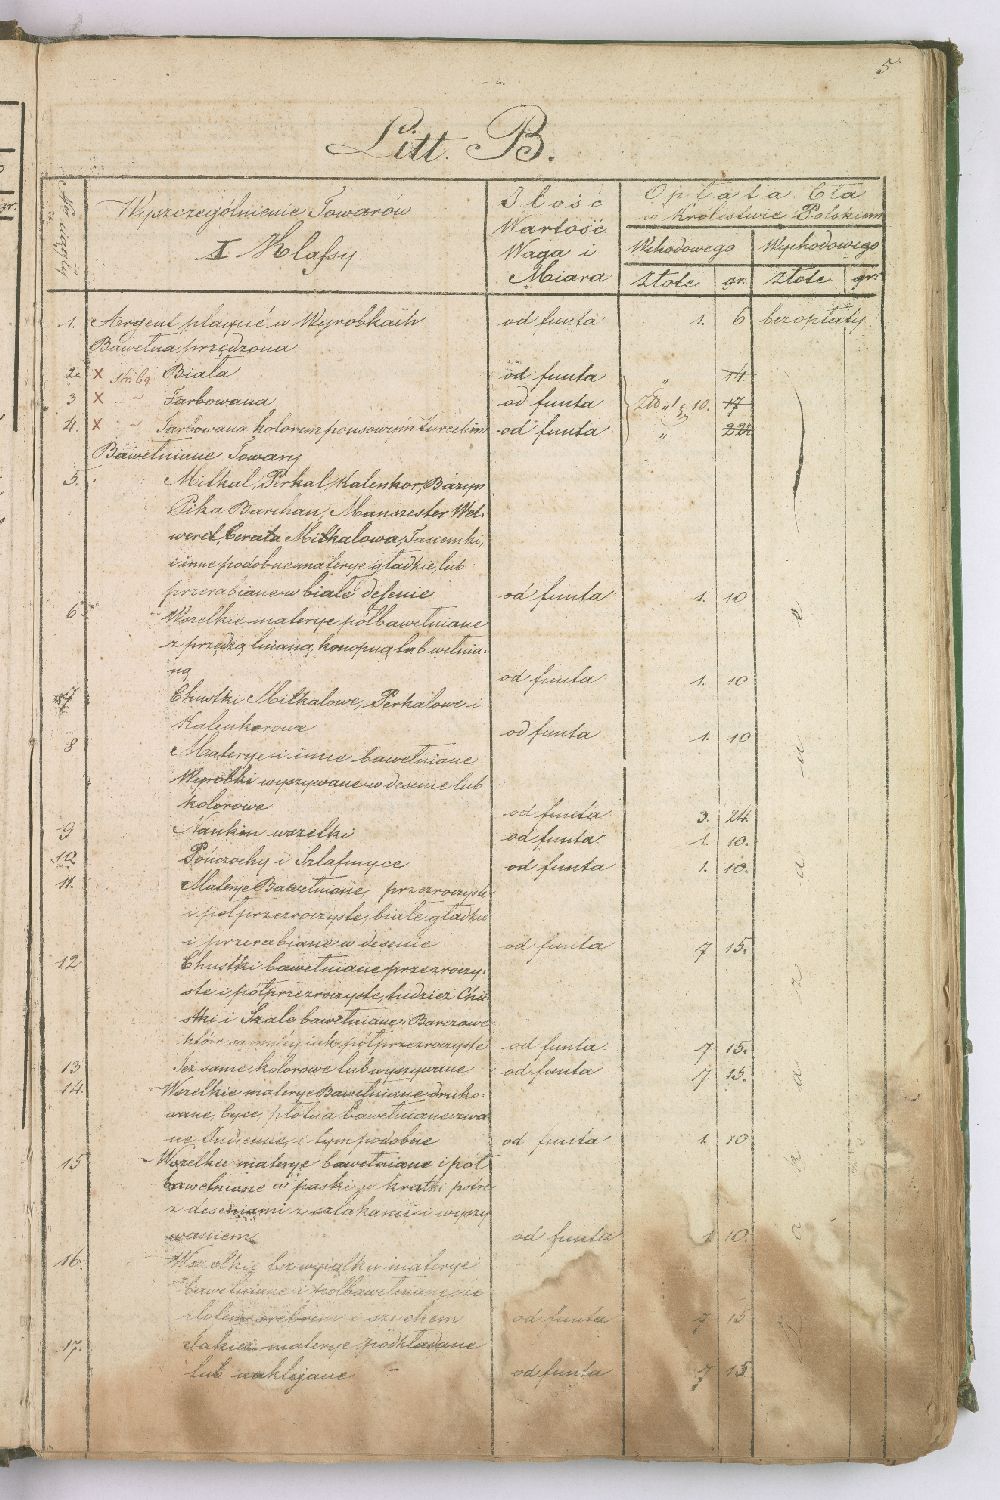 5
Litt. B.
Wyszczególnienie Towarów
I Klassy
Ilość
Wartość
Waga i
Miara
Opłata Cła
w Królestwie Polskiem
Wchodowego Wychodowego
złote gr. złote gr.
1. Argent plaqué w Wyrobkach od funta 1. 6 bez opłaty
Bawełna przędzona
2. × Biała od funta " 14
3 × " Farbowana od funta 10. 17
4. × " Farbowana kolorem ponsowem tureckim od funta " 22
Bawełniane Towary
5. Mitkal, Perkal, Kalenkor, Bazyn
Pika Barchan, Manszester Wel-
weret, Cerata Mitkalowa, Tasiemki,
i inne podobne materye gładkie, lub
przerabiane w białe desenie od funta 1. 10
6 Wszelkie materye półbawełniane
z przędzą lnianą, konopną lub wełnia-
ną od funta 1. 10
7 Chustki Mitkalowe, Perkalowe i
Kalenkorowe od funta 1. 10
8 Materye i inne bawełniane
Wyrobki wyszywane w desenie lub
kolorowe od funta 3. 24
9 Nankin wszelki od funta 1. 10.
10 Pończochy i Szlafmyce od funta 1. 10.
11. Materye Bawełniane przezroczyste
i półprzezroczyste, białe gładkie
i przerabiane w desenie od funta 7 15.
12 Chustki bawełniane przezroczy-
ste i półprzezroczyste, tudzież Chu-
stki i Szale bawełniane, Bareżowe
półprzezroczyste od funta 7 15.
13 Też same kolorowe lub wyszywane od funta 7 15.
14. Wszelkie materye Bawełniane druko-
wane, byce, płótna bawełniane zwa-
ne Indienne, i tym podobne od funta 1. 10
15 Wszelkie materye bawełniane i pół
bawełniane w paski, w kratki
z deseniami z szlakami i wyszy
waniem od funta 1 10.
16. Wszelkie bez wyjątku materye
bawełniane i półbawełniane ze
złotem srebrem i szychem od funta 7 15
17. Takież materye podkładane
lub naklejane od funta 7 15
zakazana